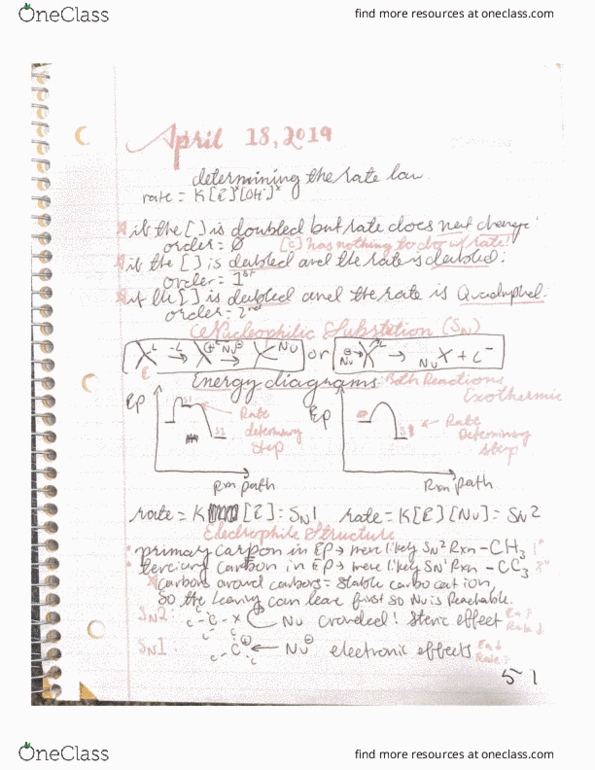 OneClass
find more resources at oneclass.com
April 18, 2019
determining the rate law
rate = K[E]ˣ[OH⁻]ˣ
if the [ ] is doubled but rate does not change:
order = 0 [c] has nothing to do w/ rate!
if the [ ] is doubled and the rate is doubled:
order = 1st
if the [ ] is doubled and the rate is Quadrupled:
order = 2nd
(SN)
X-L -L X⊕ Nu⊖ X Nu or Nu⊖ X L → Nu X + L⁻
E
Energy diagrams: Both Reactions
Exothermic
Ep Rate determining step
Rxn path
Ep Rate Determining step
Rxn path
rate = K [E] = SN1 rate = K[E][Nu] = SN2
Electrophile Structure
primary carbon in EP → more likely SN2 Rxn -CH3 1°
terciary carbon in EP → more likely SN1 Rxn -CC3 3°
carbons around carbons = stable carbo cation
so the leaving can leave first so Nu is Reachable.
SN2: C C-X C Nu crowded! Steric effect Ea↑
Rate↓
SN1: C C⊕ C ← Nu⊖ electronic effects Ea↓
Rate
5-1
OneClass
find more resources at oneclass.com